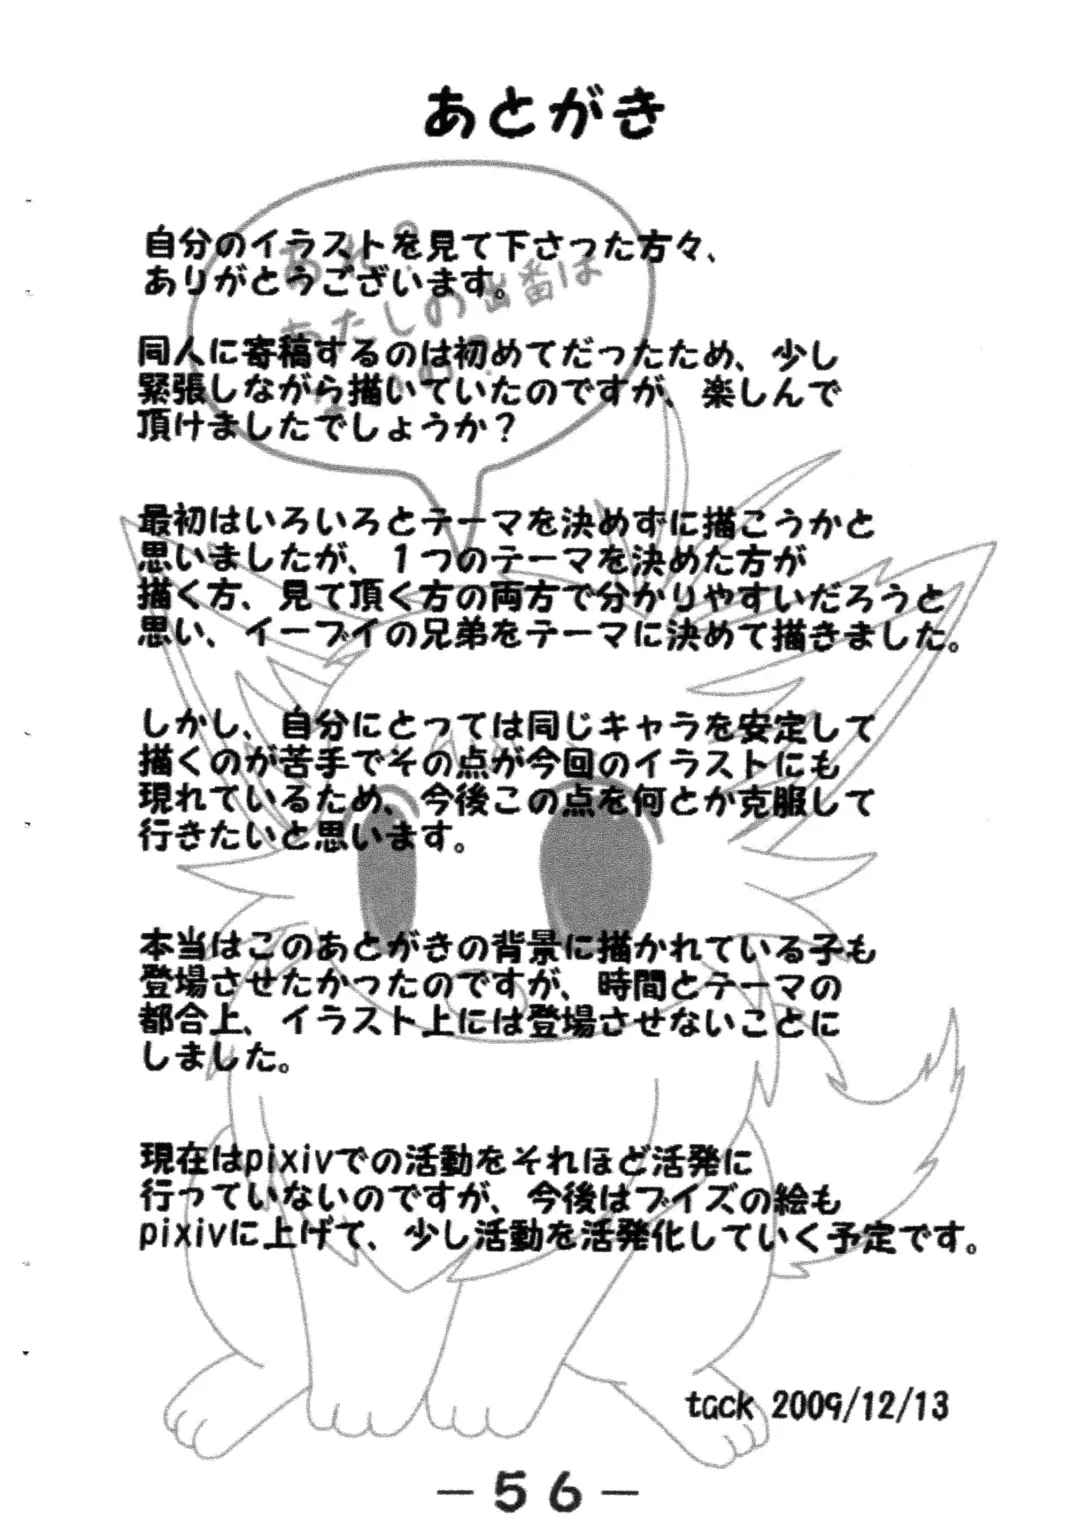 あとがき
自分のイラストを見て下さった方々、
ありがとうございます。
同人に寄稿するのは初めてだったため、少し
緊張しながら描いていたのですが、楽しんで
頂けましたでしょうか？
最初はいろいろとテーマを決めずに描こうかと
思いましたが、１つのテーマを決めた方が
描く方、見て頂く方の両方で分かりやすいだろうと
思い、イーブイの兄弟をテーマに決めて描きました。
しかし、自分にとっては同じキャラを安定して
描くのが苦手でその点が今回のイラストにも
現れているため、今後この点を何とか克服して
行きたいと思います。
本当はこのあとがきの背景に描かれている子も
登場させたかったのですが、時間とテーマの
都合上、イラスト上には登場させないことに
しました。
現在はpixivでの活動をそれほど活発に
行っていないのですが、今後はブイズの絵も
pixivに上げて、少し活動を活発化していく予定です。
tack 2009/12/13
－５６－
あれ？
わたしの出番は